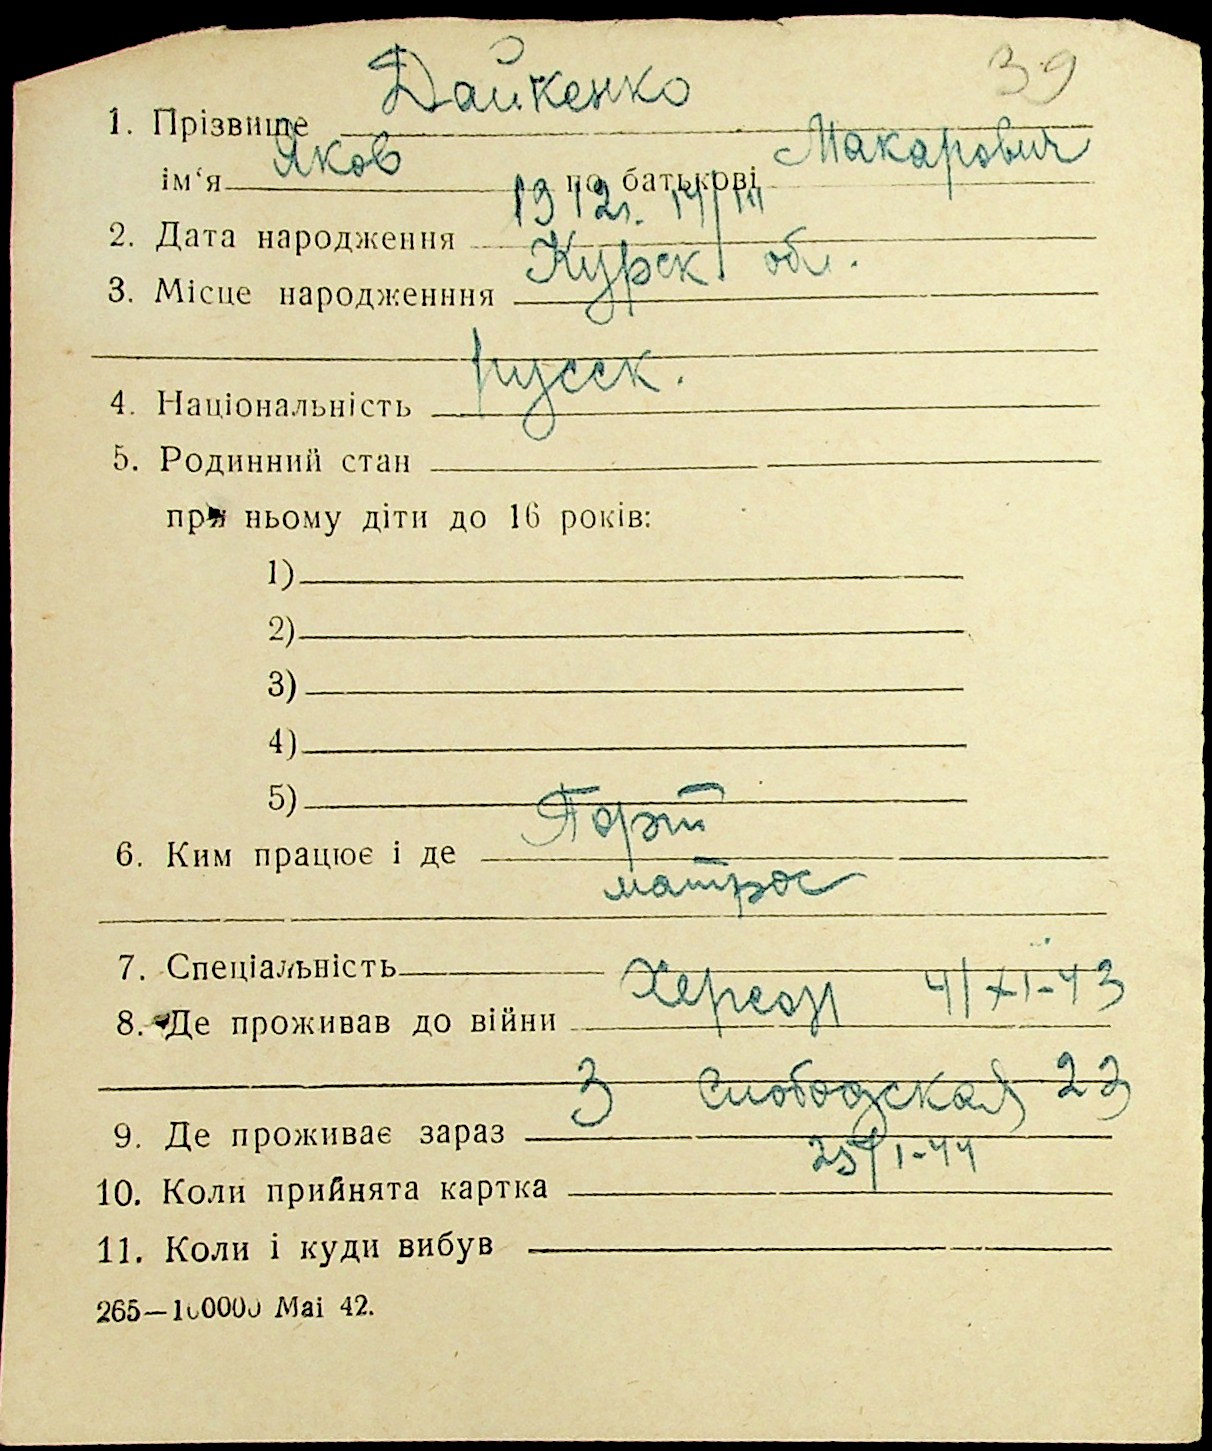 39
1. Прізвище Дайкенко
ім‘я Яков по батькові Макарович
2. Дата народження 1912г. 14/III
3. Місце народженння Курск. обл.
4. Національність русск.
5. Родинний стан
при ньому діти до 16 років:
1)
2)
3)
4)
5)
6. Ким працює і де Порт
матрос
7. Спеціальність
8. Де проживав до війни Херсон 4/XI-43
9. Де проживає зараз 3 Слободская 23
10. Коли прийнята картка 25/I-44
11. Коли і куди вибув
265—100000 Mai 42.